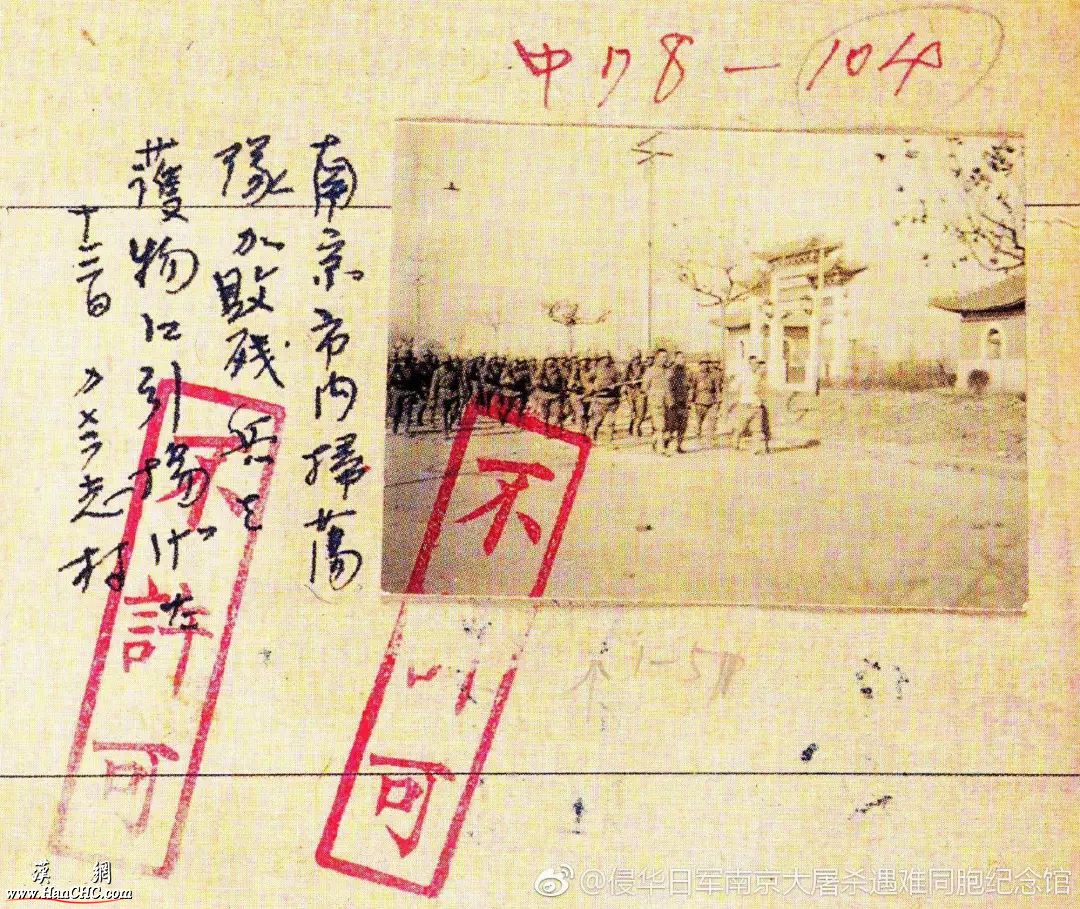 中178-104
南京市内掃蕩
隊が敗残兵と
獲物に引揚げた
志村
不許可
不 可
1-5
漢網
www.HanCHC.com
@侵华日军南京大屠杀遇难同胞纪念馆